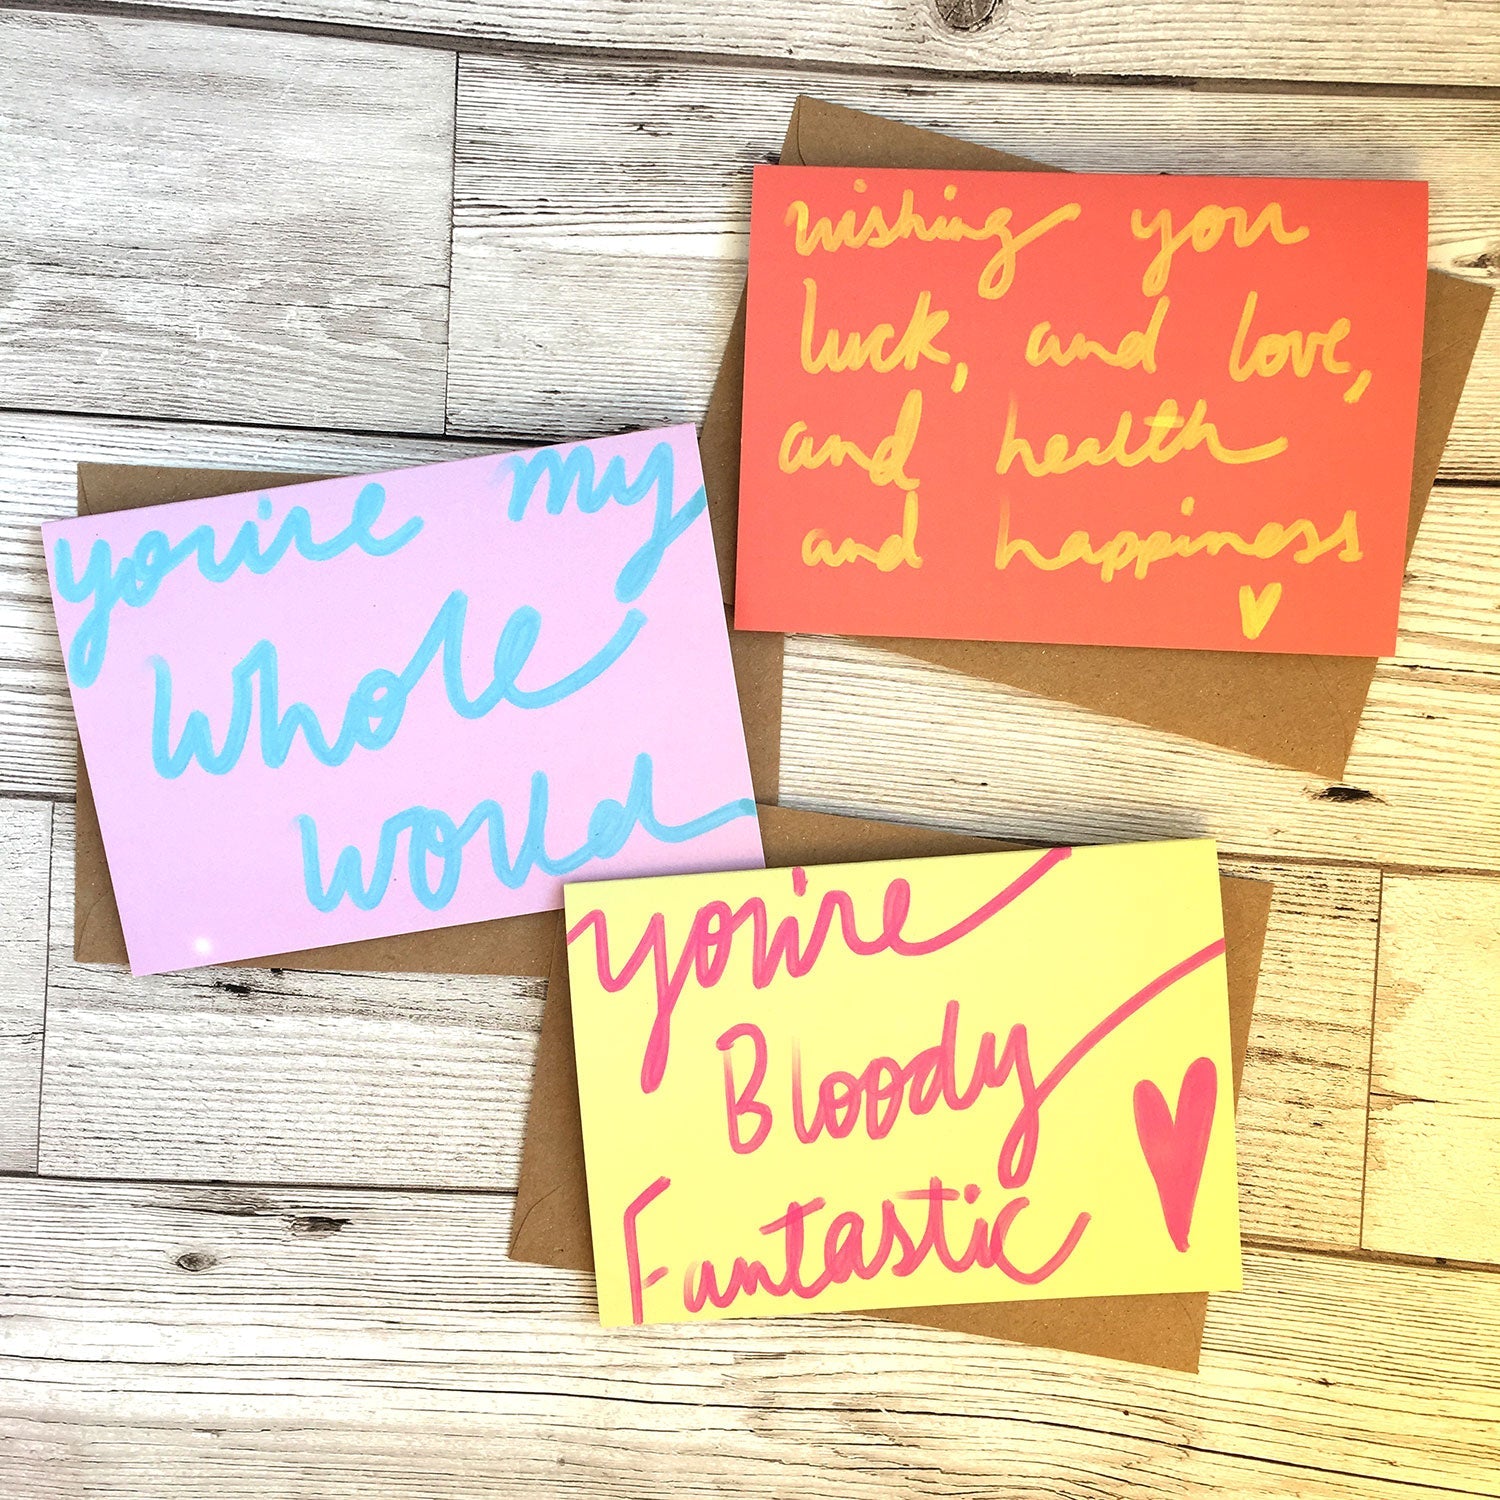 wishing you
luck, and love,
and health
and happiness
you're my
Whole
world
you're
Bloody
Fantastic